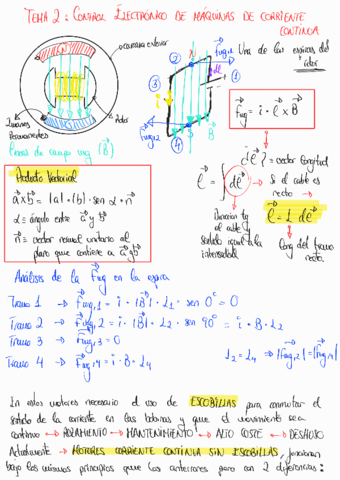 TEMA 2: CONTROL ELECTRÓNICO DE MÁQUINAS DE CORRIENTE CONTINUA
Una de las espiras del rotor
Fmg = i · l × B
Imanes Permanentes
Rotor
Líneas de campo mag (B)
dl = vector longitud
Si el cable es recto
l = ∫ dl
l = L dl
Dirección tg al cable y sentido igual a la intensidad
Long del tramo recto
Producto Vectorial
a × b = |a| · |b| · sen α · n
α = ángulo entre a y b
n = vector normal unitario al plano que contiene a a y b
Análisis de la Fmg en la espira
Tramo 1 → Fmg,1 = i · |B| · L1 · sen 0° = 0
Tramo 2 → Fmg,2 = i · |B| · L2 · sen 90° = i · B · L2
Tramo 3 → Fmg,3 = 0
Tramo 4 → Fmg,4 = i · B · L4
L2 = L4 ⇒ |Fmg,2| = |Fmg,4|
En estos motores necesario el uso de ESCOBILLAS para conmutar el
sentido de la corriente en las bobinas y que el movimiento sea
continuo → ROZAMIENTO → MANTENIMIENTO → ALTO COSTE → DESUSO
Actualmente → MOTORES CORRIENTE CONTINUA SIN ESCOBILLAS funcionan
bajo los mismos principios que los anteriores pero con 2 diferencias: